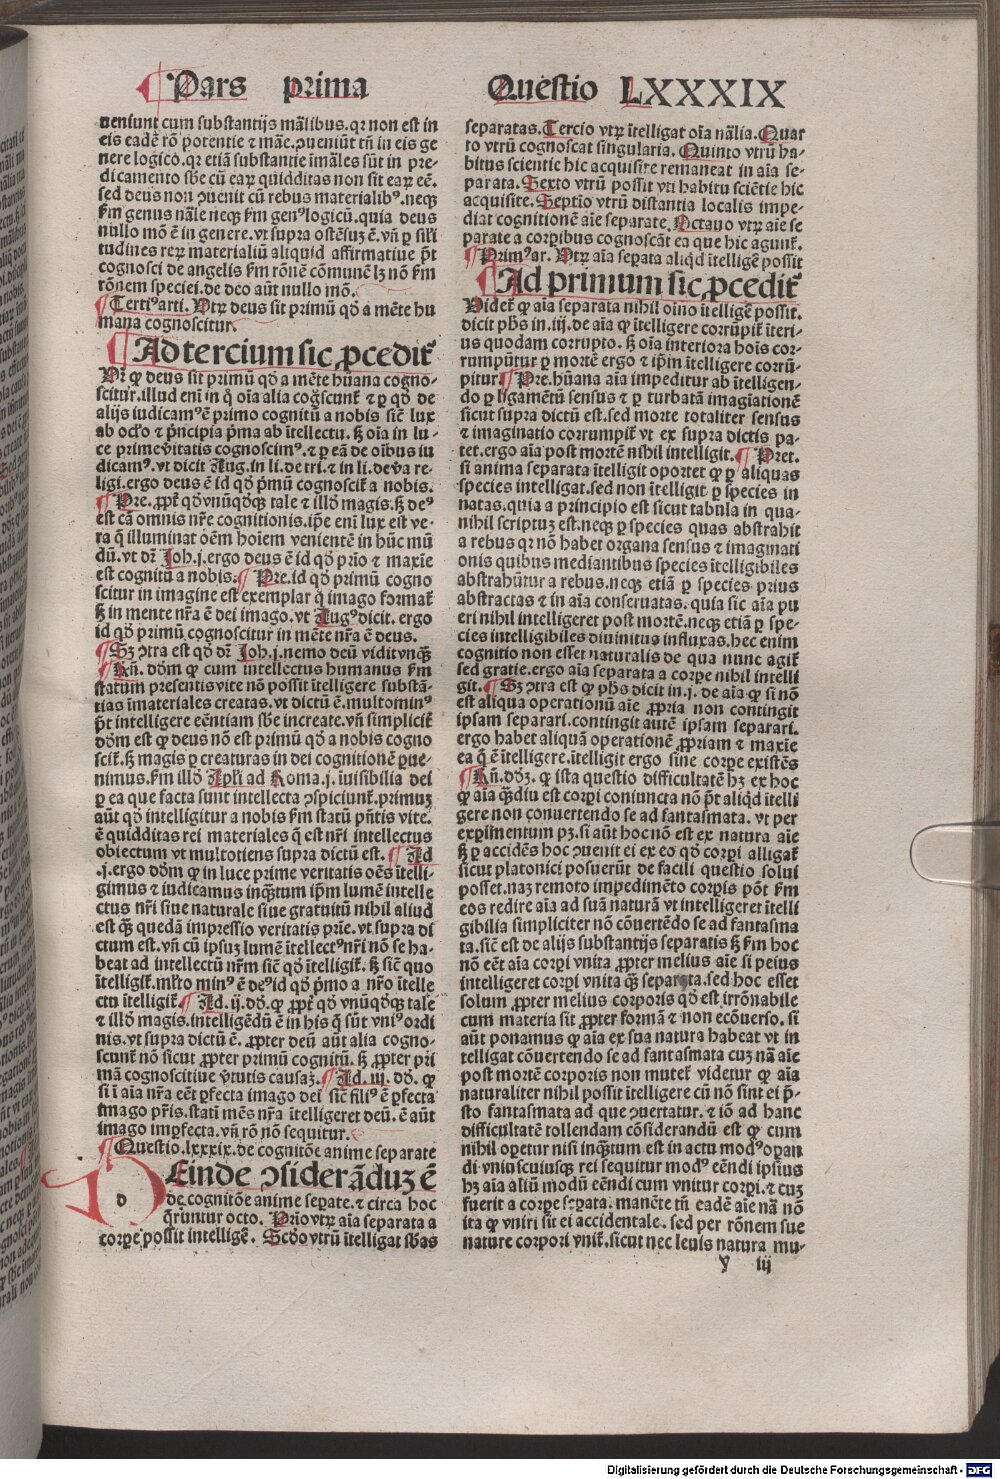 Pars prima Questio LXXXIX
ueniunt cum substantijs mãlibus. qꝛ non est in
eis eadẽ rõ potentie ⁊ mãe. ꝯueniũt tñ in eis ge
nere logico. qꝛ etiã substantie imãles sũt in pre-
dicamento sbe cũ eaꝝ quidditas non sit eaꝝ eẽ.
sed deus non ꝯuenit cũ rebus materialibꝰ. neqꝫ
ẜm genus nãle neqꝫ ẜm genꝰ logicũ. quia deus
nullo mõ ẽ in genere. vt supra ostẽsuꝫ ẽ. vñ ꝑ sili
tudines reꝝ materialiũ aliquid affirmatiue p̃t
cognosci de angelis ẜm rõnẽ cõmunẽ lꝫ nõ ẜm
rõnem speciei. de deo aũt nullo mõ.
¶ Tertiꝰ arti. Vtꝝ deus sit primũ qđ a mẽte hu
mana cognoscitur.
¶ Ad tercium sic ꝓcedit̃
Vr̃ ꝙ deus sit primũ qđ a mẽte hũana cogno-
scitur. illud eni in q̃ oĩa alia cog̃scunt̃ ⁊ ꝑ qđ de
alijs iudicamꝰ ẽ primo cognitũ a nobis sic̃ lux
ab oc̃lo ⁊ p̃ncipia p̃ma ab ĩtellectu. ẞ oĩa in lu-
ce prime v̾itatis cognoscimꝰ. ⁊ ꝑ eã de oĩbus iu
dicamꝰ. vt dicit Aug. in li. de tri. ⁊ in li. de v̾a re-
ligi. ergo deus ẽ id qđ p̃mũ cognoscit̃ a nobis.
¶ Pre. ꝓpt̃ qđ vnũqđqꝫ tale ⁊ illđ magis. ẞ deꝰ
est cã omnis nr̃e cognitionis. ip̃e eni lux est ve-
ra q̃ illuminat oẽm hoĩem venientẽ in hũc mũ
dũ. vt dr̃ Joh. j. ergo deus ẽ id qđ prĩo ⁊ maxĩe
est cognitũ a nobis. ¶ Pre. id qđ primũ cogno
scitur in imagine est exemplar q̃ imago formãt
ẞ in mente nr̃a ẽ dei imago. vt Augꝰ dicit. ergo
id qđ primũ cognoscitur in mẽte nr̃a ẽ deus.
¶ Sꝫ ꝯtra est qđ dr̃ Joh. j. nemo deũ vidit vnq̃ꝫ
¶ Rñ. dõm ꝙ cum intellectus humanus ẜm
statum presentis vite nõ possit ĩtelligere substã-
tias imateriales creatas. vt dictũ ẽ. multominꝰ
p̃t intelligere eẽntiam sbe increate. vñ simplicit̃
dõm est ꝙ deus nõ est primũ qđ a nobis cogno
scit̃. ẞ magis ꝑ creaturas in dei cognitionẽ ꝑue-
nimus. ẜm illđ Apl̃i ad Roma. j. ĩuisibilia dei
ꝑ ea que facta sunt intellecta ꝯspiciunt̃. primuꝫ
aũt qđ intelligitur a nobis ẜm statũ p̃ntis vite.
ẽ quidditas rei materiales q̃ est nr̃i intellectus
obiectum vt multotiens supra dictũ est. ¶ Ad
.j. ergo dõm ꝙ in luce prime veritatis oẽs ĩtelli-
gimus ⁊ iudicamus inq̃ꝫtum ip̃m lumẽ intelle
ctus nr̃i siue naturale siue gratuitũ nihil aliud
est q̃ꝫ quedã impressio veritatis prĩe. vt supra di
ctum est. vñ cũ ipsuꝫ lumẽ ĩtellectꝰ nr̃i nõ se ha-
beat ad intellectũ nr̃m sic̃ qđ ĩtelligit̃. ẞ sic̃ quo
ĩtelligit̃. ml̃to minꝰ ẽ deꝰ id qđ p̃mo a nr̃o ĩtelle
ctu ĩtelligit̃. ¶ Ad. ij. đđ. ꝙ ꝓpt̃ qđ vnũqđqꝫ tale
⁊ illđ magis. intelligẽdũ ẽ in his q̃ sũt vniꝰ ordi
nis. vt supra dictũ ẽ. ꝓpter deũ aũt alia cogno-
scunt̃ nõ sicut ꝓpter primũ cognitũ. ẞ ꝓpter pri
mã cognoscitiue v̾tutis causaꝫ. ¶ Ad. iij. đđ. ꝙ
si ĩ aĩa nr̃a eẽt ꝑfecta imago dei sic̃ filiꝰ ẽ ꝑfecta
imago pr̃is. statĩ mẽs nr̃a ĩtelligeret deũ. ẽ aũt
imago imꝑfecta. vñ rõ nõ sequitur.
¶ Questio. lxxxix. de cognitõe anime separate
Deinde ꝯsiderãduꝫ ẽ
de cognitõe anime seꝑate. ⁊ circa hoc
q̃runtur octo. Prĩo vtꝝ aĩa separata a
corꝑe possit intelligẽ. Scđo vtrũ ĩtelligat sbas
separatas. Tercio vtꝝ ĩtelligat oĩa nãlia. Quar
to vtrũ cognoscat singularia. Quinto vtrũ ha-
bitus scientie hic acquisite remaneat in aĩa se-
parata. Sexto vtrũ possit vti habitu sciẽtie hic
acquisite. Septĩo vtrũ distantia localis impe-
diat cognitionẽ aĩe separate. Octauo vtꝝ aĩe se
parate a corꝑibus cognoscãt ea que hic agunt̃.
¶ Primꝰ ar. Vtꝝ aĩa seꝑata aliqđ ĩtelligẽ possit
¶ Ad primum sic ꝓcedit̃
Videt̃ ꝙ aĩa separata nihil oĩno ĩtelligẽ possit.
dicit ph̃s in. iij. de aĩa ꝙ ĩtelligere corrũpit̃ ĩteri-
us quodam corrupto. ẞ oĩa interiora hoĩs cor-
rumpũtur ꝑ mortẽ ergo ⁊ ip̃m ĩtelligere corrũ-
pitur ¶ Pre. hũana aĩa impeditur ab ĩtelligen-
do ꝑ ligamẽtũ sensus ⁊ ꝑ turbatã imagĩationẽ
sicut supra dictũ est. sed morte totaliter sensus
⁊ imaginatio corrumpit̃ vt ex supra dictis pa-
tet. ergo aĩa post mortẽ nihil intelligit. ¶ Pret.
si anima separata ĩtelligit oportet ꝙ ꝑ aliquas
species intelligat. sed non ĩtelligit ꝑ species in
natas. quia a principio est sicut tabula in qua-
nihil scriptuꝫ est. neqꝫ ꝑ species quas abstrahit
a rebus qꝛ nõ habet organa sensus ⁊ imaginati
onis quibus mediantibus species ĩtelligibiles
abstrahũtur a rebus. neqꝫ etiã ꝑ species prius
abstractas ⁊ in aĩa conseruatas. quia sic aĩa pu
eri nihil intelligeret post mortẽ. neqꝫ etiã ꝑ spe-
cies intelligibiles diuinitus influxas. hec enim
cognitio non esset naturalis de qua nunc agit̃
sed gratie. ergo aĩa separata a corꝑe nihil intelli
git. ¶ Sꝫ ꝯtra est ꝙ ph̃s dicit in. j. de aĩa ꝙ si nõ
est aliqua operationũ aĩe ꝓpria non contingit
ipsam separari. contingit autẽ ipsam separari.
ergo habet aliquã operationẽ ꝓpriam ⁊ maxĩe
ea q̃ ẽ ĩtelligere. ĩtelligit ergo sine corꝑe existẽs
¶ Rñ. đđꝫ. ꝙ ista questio difficultatẽ hꝫ ex hoc
ꝙ aĩa q̃ꝫdiu est corꝑi coniuncta nõ p̃t aliqđ ĩtelli
gere non conuertendo se ad fantasmata. vt per
experimentum pꝫ. si aũt hoc nõ est ex natura aĩe
ẞ ꝑ accidẽs hoc ꝯuenit ei ex eo qđ corꝑi alligat̃
sicut platonici posuerũt de facili questio solui
posset. naꝫ remoto impedimẽto corꝑis põt ẜm
eos redire aĩa ad suã naturã vt intelligeret ĩtelli
gibilia simpliciter nõ cõuertẽdo se ad fantasma
ta. sic̃ est de alijs substantijs separatis ẞ ẜm hoc
nõ eẽt aĩa corꝑi vnita ꝓpter melius aĩe si peius
intelligeret corꝑi vnita q̃ꝫ separata. sed hoc esset
solum ꝓpter melius corporis qđ est irrõnabile
cum materia sit ꝓpter formã ⁊ non ecõuerso. si
aũt ponamus ꝙ aĩa ex sua natura habeat vt in
telligat cõuertendo se ad fantasmata cuꝫ nã aĩe
post mortẽ corporis non mutet̃ videtur ꝙ aĩa
naturaliter nihil possit ĩtelligere cũ nõ sint ei p̃-
sto fantasmata ad que ꝯuertatur. ⁊ iõ ad hanc
difficultatẽ tollendam cõsiderandũ est ꝙ cum
nihil operetur nisi inq̃ꝫtum est in actu modꝰ oꝑan
di vniuscuiusqꝫ rei sequitur modꝰ eẽndi ipsius
hꝫ aĩa aliũ modũ eẽndi cum vnitur corꝑi. ⁊ cuꝫ
fuerit a corꝑe seꝑata. manẽte tñ eadẽ aĩe nã nõ
ita ꝙ vniri sit ei accidentale. sed per rõnem sue
nature corpori vnit̃. sicut nec leuis natura mu-
y iij
Digitalisierung gefördert durch die Deutsche Forschungsgemeinschaft - DFG